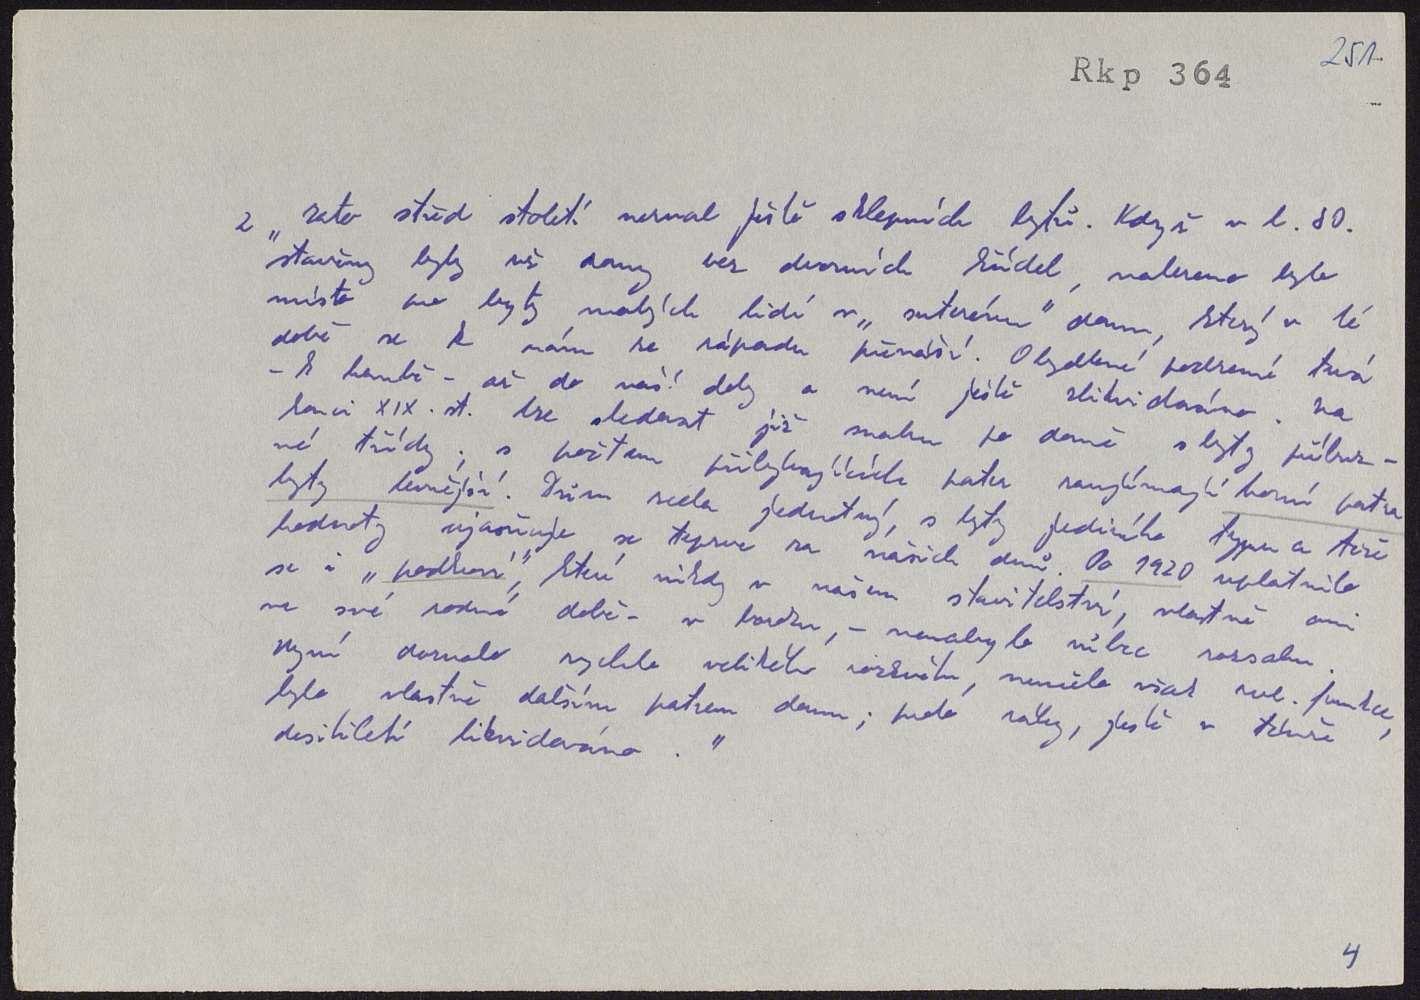 251.
Rkp 364
2 „Zato střed století neznal ještě sklepních bytů. Když v l. 80.
stavěny byly už domy bez dvorních křídel, nalezeno bylo
místo pro byty malých lidí v „suterénu" domu, který v té
době se k nám ze západu přenáší. Obydlené podzemí trvá
- k hanbě - až do naší doby a není ještě zlikvidováno. Na
konci XIX. st. lze sledovat již snahu po domě s byty příbuz-
né třídy; s počtem přibývajících pater zaujímají horní patra
byty levnější. Dům zcela jednotný, s byty jediného typu a téže
hodnoty objasňuje se teprve za našich dnů. Po 1920 uplatnilo
se i „podkroví", které nikdy v našem stavitelství, vlastně ani
ve své rodné době - v baroku, - nenabylo vůbec rozsahu.
Nyní doznalo rychle velikého rozkvětu, nemělo však funkce,
bylo vlastně dalším patrem domu; proto záhy, ještě v témže
desítiletí likvidováno."
4